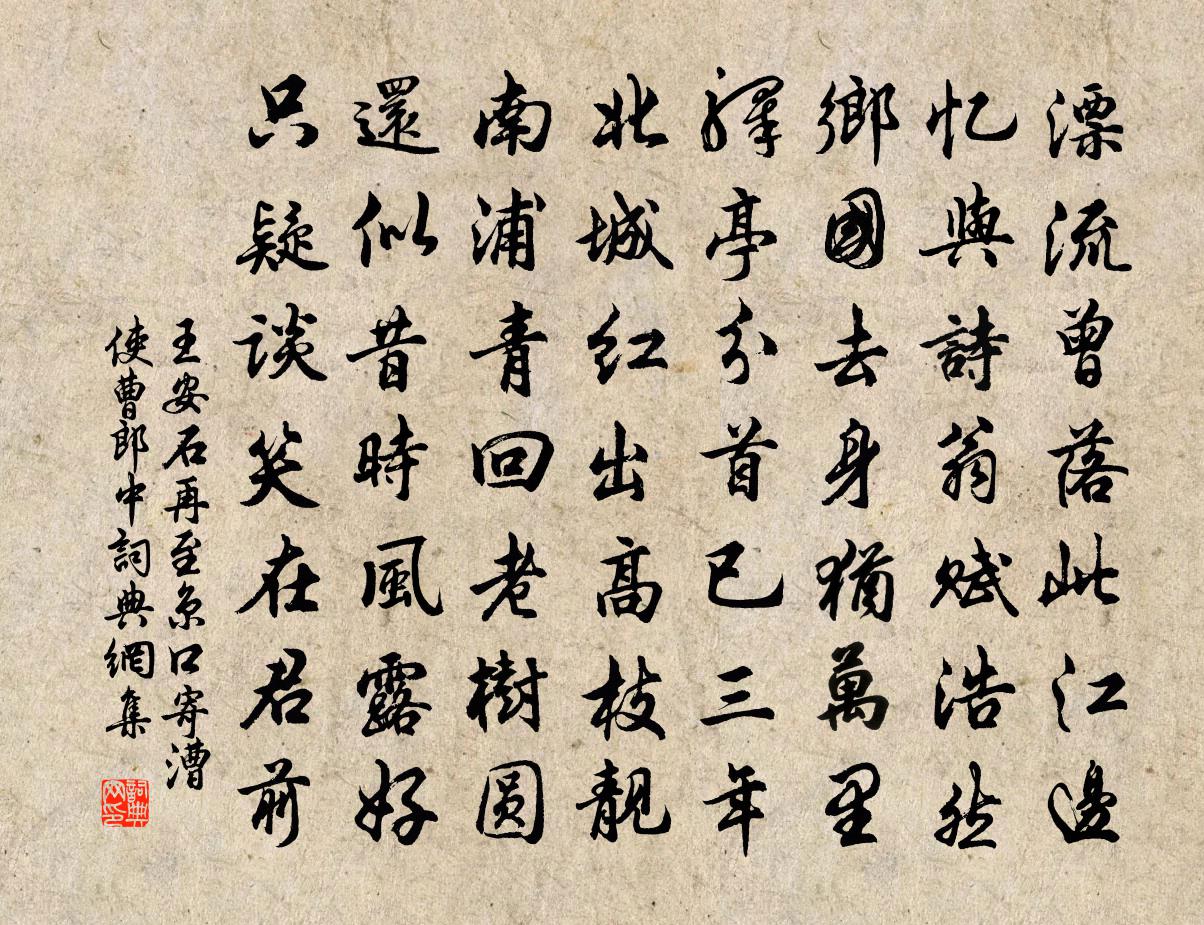 漂流曾落此江邊
忆與詩翁賦浩然
鄉國去身猶萬里
驛亭分首已三年
北城红出高枝靚
南浦青回老樹圓
還似昔時風露好
只疑談笑在君前
王安石再至京口寄漕
使曹郎中詞典網集
詞典
网印